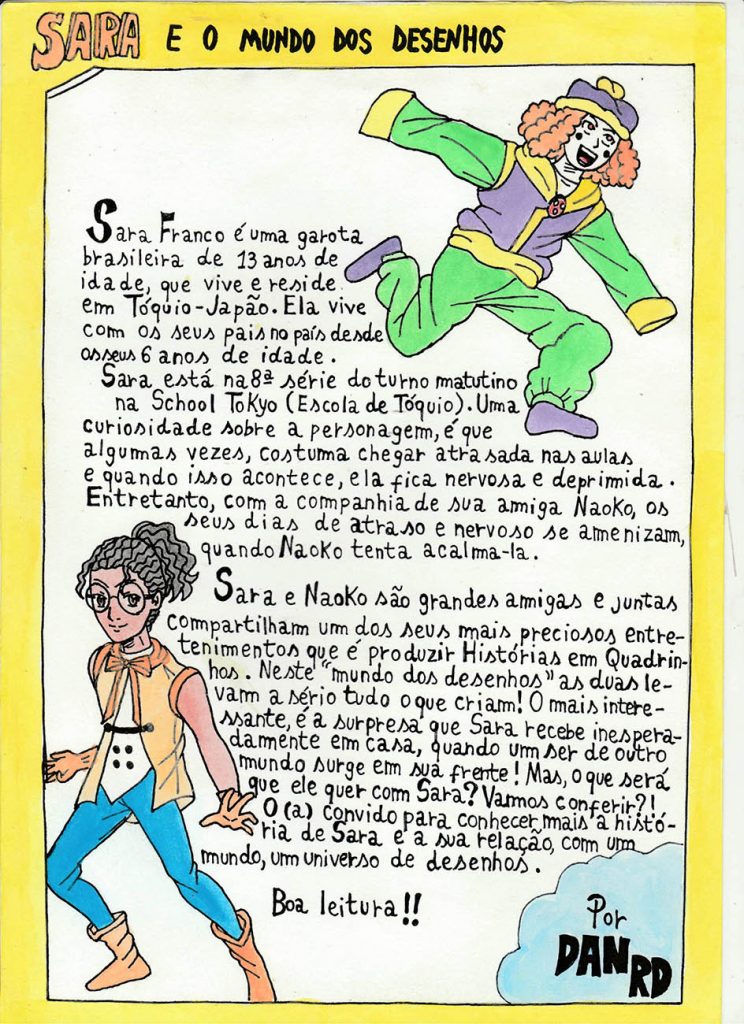 SARA E O MUNDO DOS DESENHOS
Sara Franco é uma garota
brasileira de 13 anos de
idade, que vive e reside
em Tóquio-Japão. Ela vive
com os seus pais no país desde
os seus 6 anos de idade.
Sara está na 8ª série do turno matutino
na School Tokyo (Escola de Tóquio). Uma
curiosidade sobre a personagem, é que
algumas vezes, costuma chegar atrasada nas aulas
e quando isso acontece, ela fica nervosa e deprimida.
Entretanto, com a companhia de sua amiga Naoko, os
seus dias de atraso e nervoso se amenizam,
quando Naoko tenta acalma-la.
Sara e Naoko são grandes amigas e juntas
compartilham um dos seus mais preciosos entre-
tenimentos que é produzir Histórias em Quadrin-
hos. Neste "mundo dos desenhos" as duas le-
vam a sério tudo o que criam! O mais intere-
ssante, é a surpresa que Sara recebe inespera-
damente em casa, quando um ser de outro
mundo surge em sua frente! Mas, o que será
que ele quer com Sara? Vamos conferir?!
O (a) convido para conhecer mais a histó-
ria de Sara e a sua relação, com um
mundo, um universo de desenhos.
Boa leitura!!
Por
DAN RD